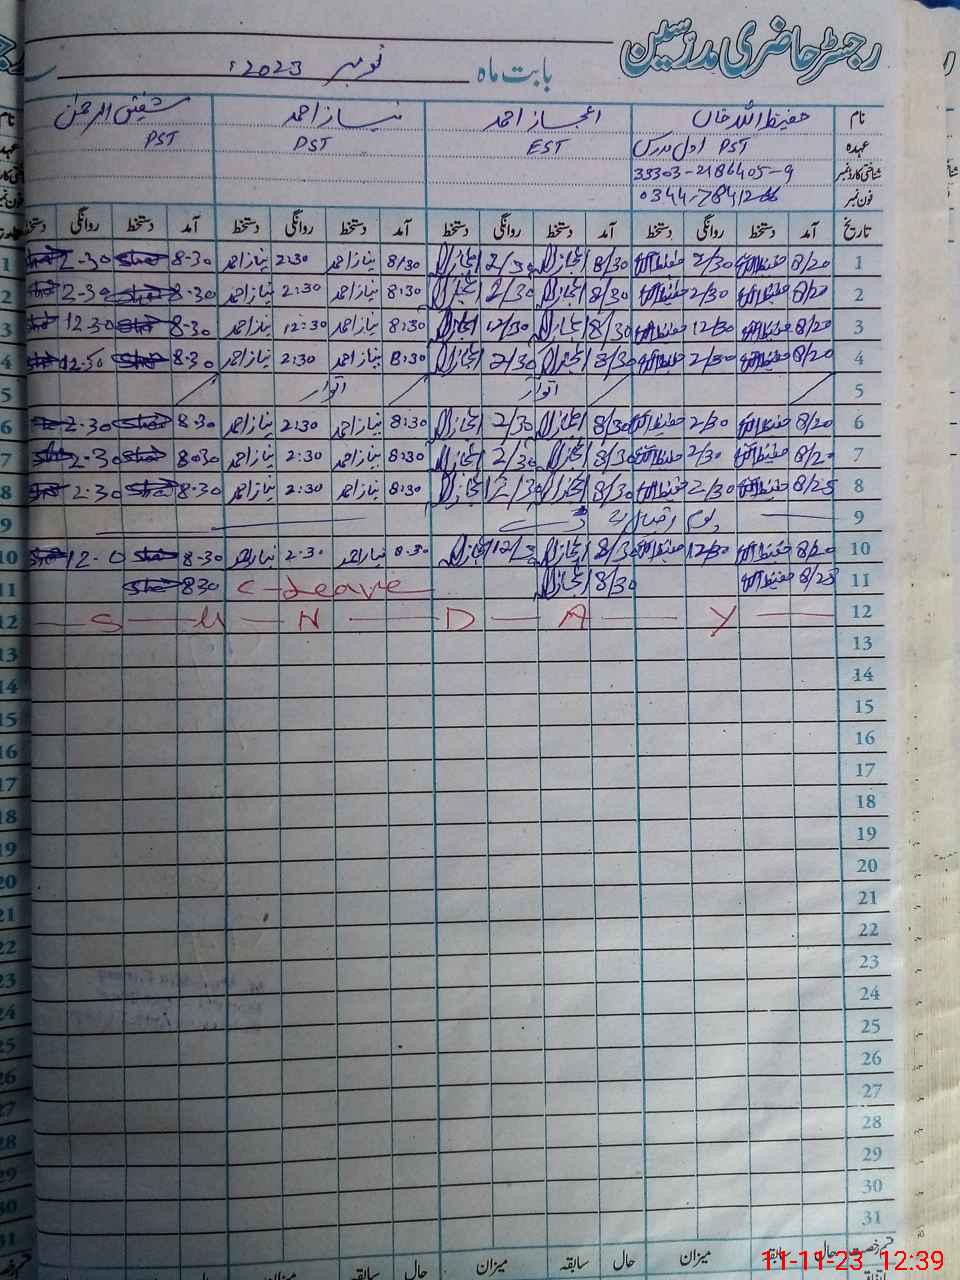 رجسٹر حاضری مدرسین
بابت ماہ نومبر 2023ء
نام حفیظ اللہ خان اعجاز احمد نیاز احمد شفیق الرحمٰن
عہدہ PST اول مدرس EST PST PST
شناختی کارڈ نمبر 33303-2186405-9
فون نمبر
تاریخ آمد دستخط روانگی دستخط آمد دستخط روانگی دستخط آمد دستخط روانگی دستخط آمد دستخط روانگی دستخط
1 8/20 حفیظ اللہ 2/30 حفیظ اللہ 8/30 اعجاز 2/30 اعجاز 8/30 نیاز احمد 2:30 نیاز احمد 8-30 2-30
2 8/20 حفیظ اللہ 2/30 حفیظ اللہ 8/30 اعجاز 2/30 اعجاز 8:30 نیاز احمد 2:30 نیاز احمد 8-30 2-30
3 8/20 حفیظ اللہ 12/30 حفیظ اللہ 8/30 اعجاز 12/30 اعجاز 8:30 نیاز احمد 12:30 نیاز احمد 8-30 12-30
4 8/20 حفیظ اللہ 2/30 حفیظ اللہ 8/30 اعجاز 2/30 اعجاز 8:30 نیاز احمد 2:30 نیاز احمد 8-30
5 اتوار اتوار
6 8/20 حفیظ اللہ 2/30 حفیظ اللہ 8/30 اعجاز 2/30 اعجاز 8:30 نیاز احمد 2:30 نیاز احمد 8-30 2-30
7 8/20 حفیظ اللہ 2/30 حفیظ اللہ 8/30 اعجاز 2/30 اعجاز 8:30 نیاز احمد 2:30 نیاز احمد 8-30 2-30
8 8/25 حفیظ اللہ 2/30 حفیظ اللہ 8/30 اعجاز 12/30 اعجاز 8:30 نیاز احمد 2:30 نیاز احمد 8-30 2-30
9 یوم اقبال
10 8/20 حفیظ اللہ 12/30 حفیظ اللہ 8/30 اعجاز اعجاز 8-30 نیاز احمد 2-30 نیاز احمد 8-30
11 8/25 حفیظ اللہ 8/30 اعجاز C-Leave 830
12 S U N D A Y
13
14
15
16
17
18
19
20
21
22
23
24
25
26
27
28
29
30
31
سابقہ حال میزان سابقہ حال میزان سابقہ حال میزان
11-11-23 12:39